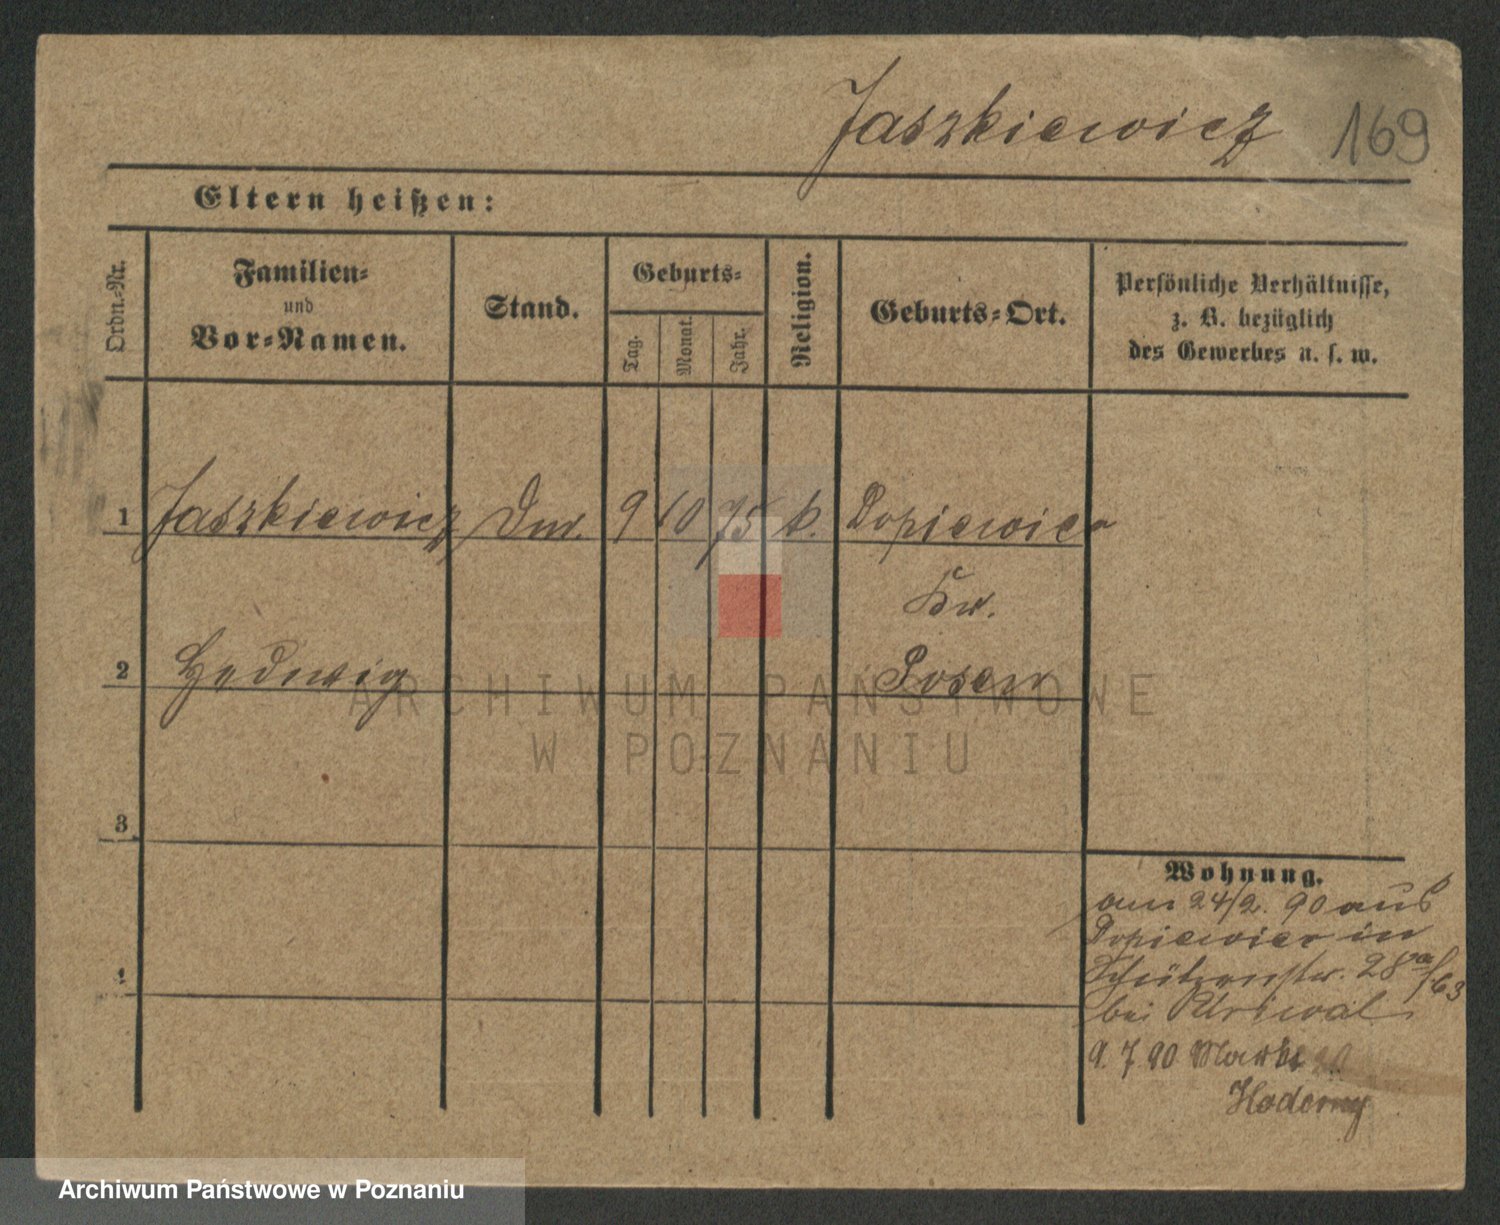 Jaszkiewicz 169
Eltern heißen:
Ordn.-Nr.
Familien-
und
Vor-Namen.
Stand.
Geburts-
Tag.
Monat.
Jahr.
Religion.
Geburts-Ort.
Persönliche Verhältnisse,
z. B. bezüglich
des Gewerbes u. s. w.
1 Jaszkiewicz Dm. 9 10 75 k. Dopiewiec
Kr.
2 Hedwig Posen
ARCHIWUM PAŃSTWOWE
W POZNANIU
3
4
Wohnung.
am 24/2. 90 aus
Dopiewiec in
Schützenstr. 28a
bei
9. 7. 90 Markt
Archiwum Państwowe w Poznaniu